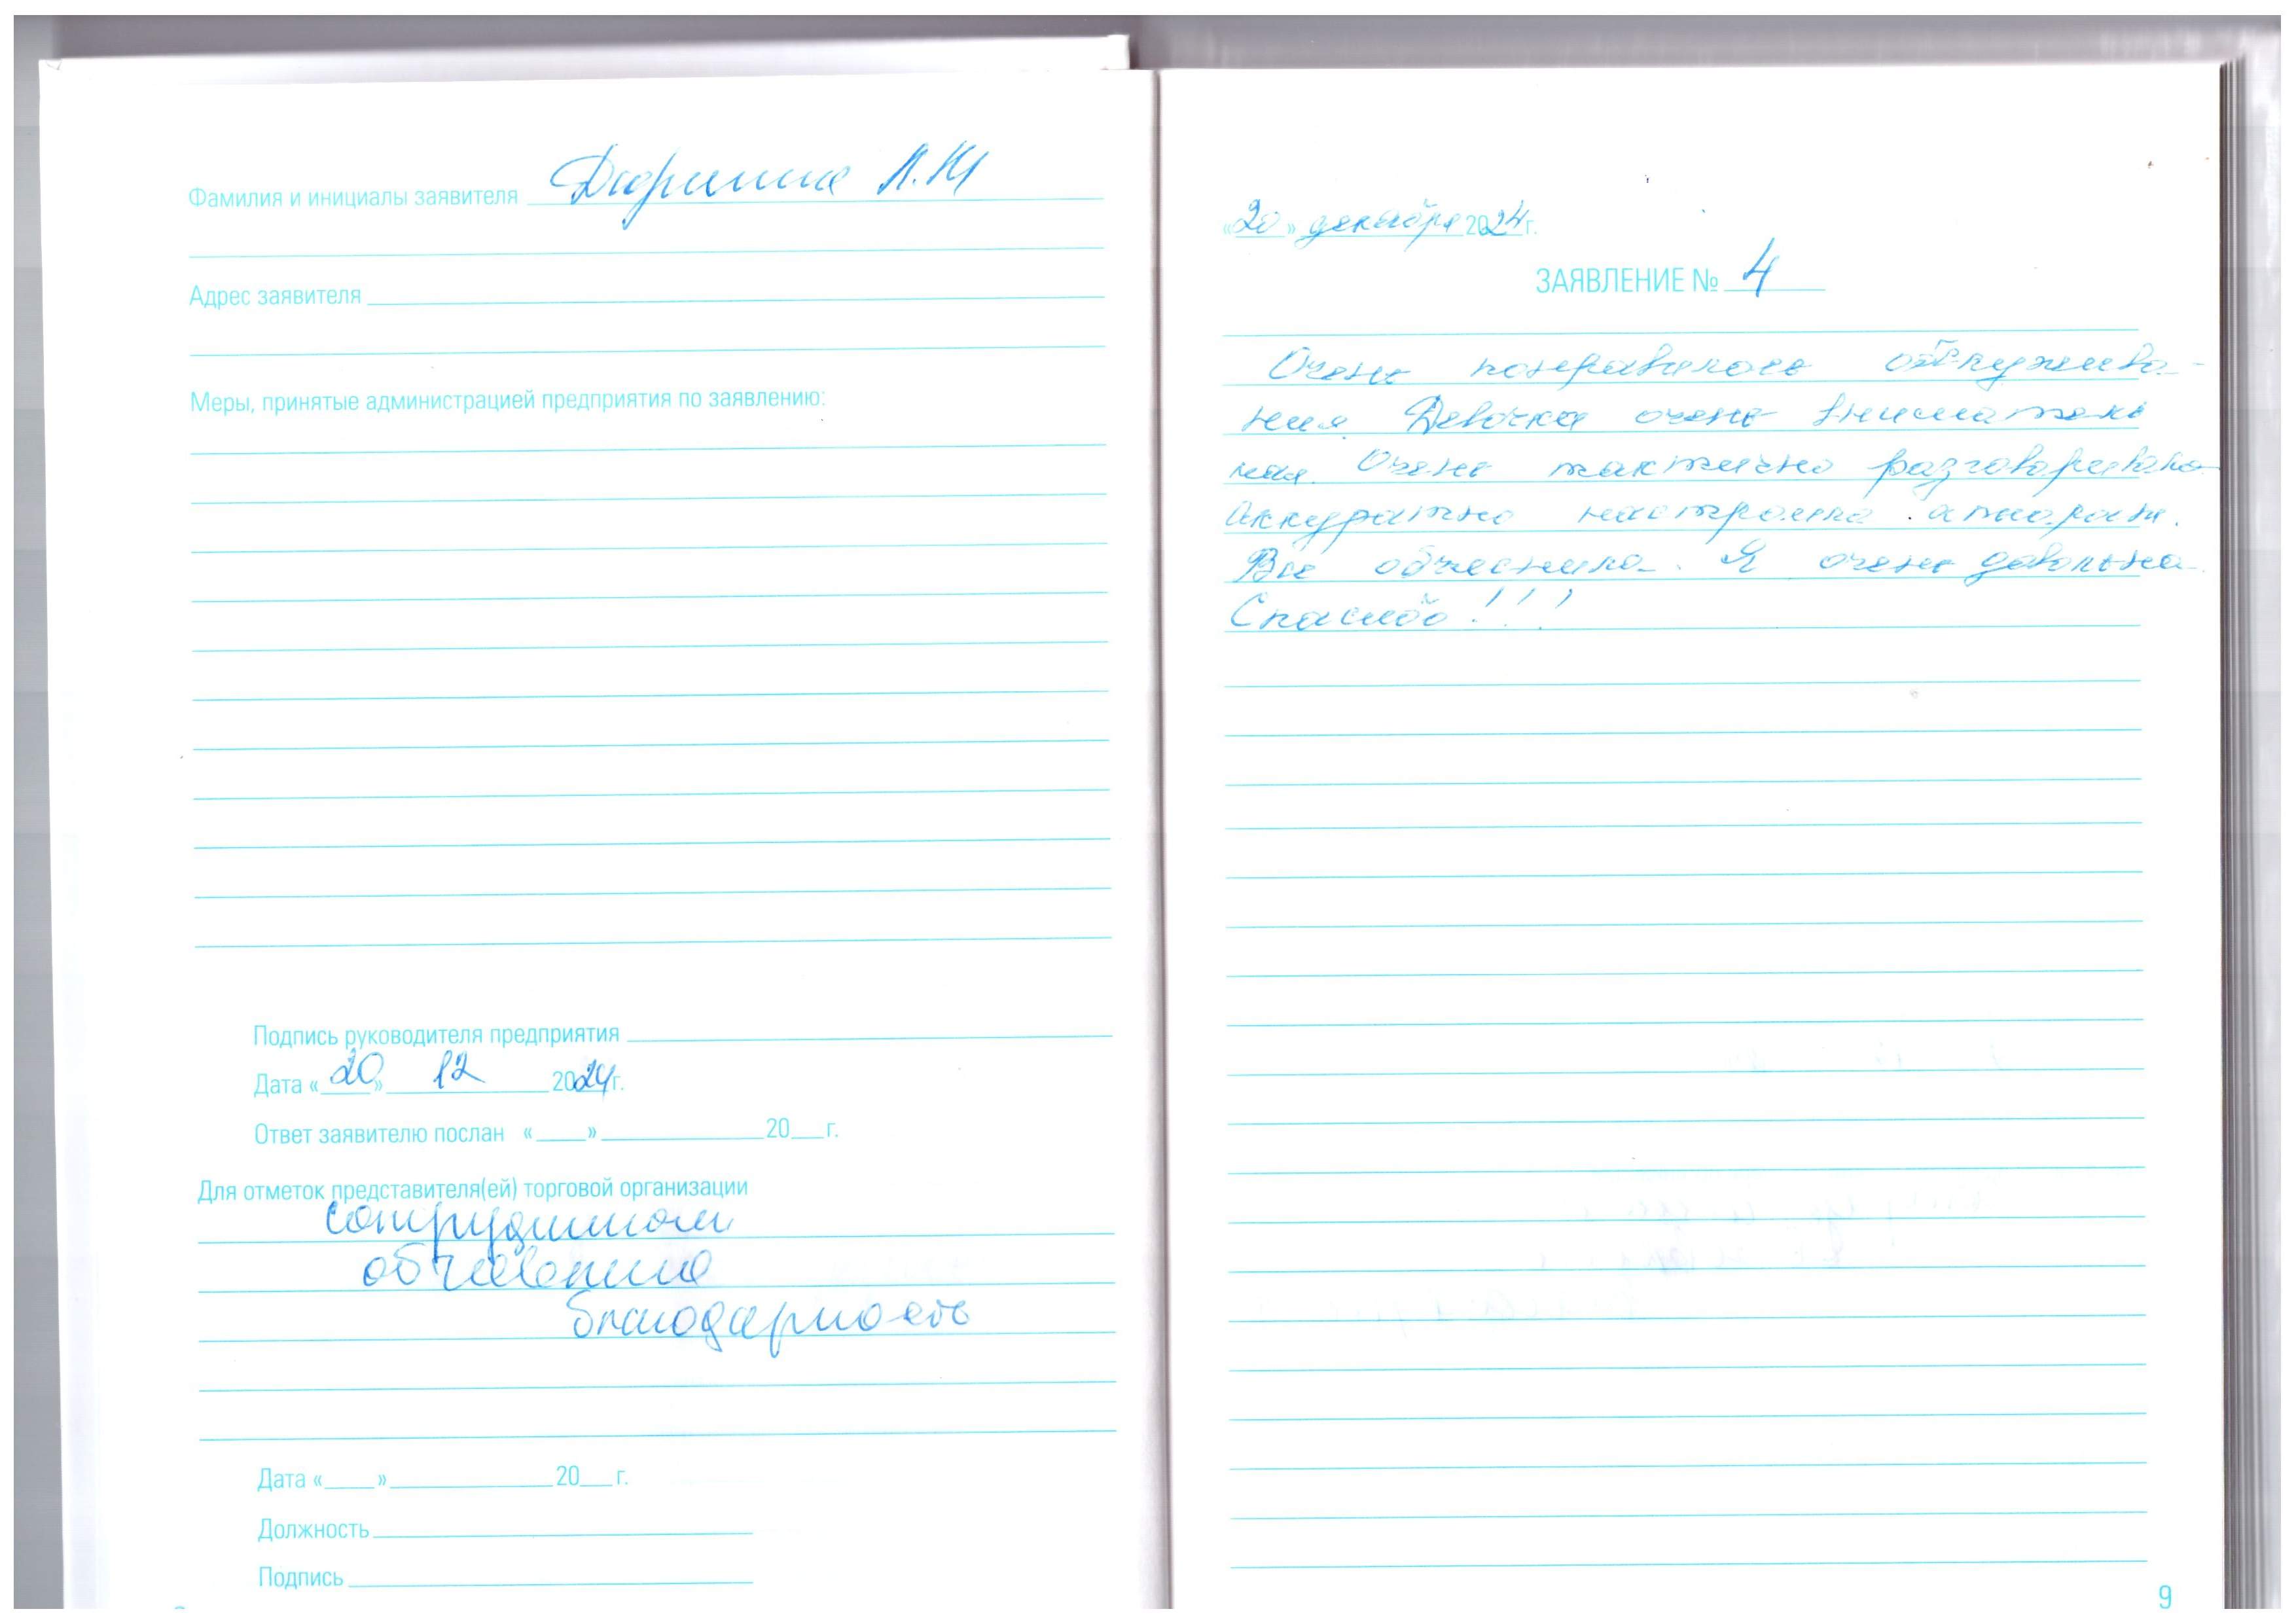 Фамилия и инициалы заявителя Л.Ю
Адрес заявителя
Меры, принятые администрацией предприятия по заявлению:
Подпись руководителя предприятия
Дата «20» 12 2024г.
Ответ заявителю послан «    »        20   г.
Для отметок представителя(ей) торговой организации
сотрудникам
объявлена
благодарность
Дата «    »        20   г.
Должность
Подпись
«20» декабря 2024г.
ЗАЯВЛЕНИЕ № 4
Очень понравилось обслужива-
ния. Девочка очень вниматель
ная. Очень тактично разговаривала
Аккуратно настроила аппарат.
Все объяснила. Я очень довольна.
Спасибо!!!
9